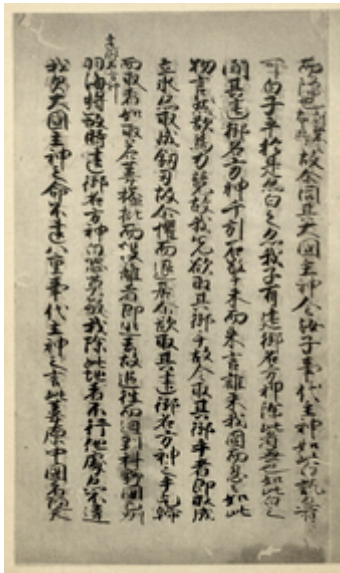 而隱也故尓問其大國主神今汝子事代主神如此白訖亦有
可白子乎於是亦白之亦我子有建御名方神除此者無也如此白之
間其建御名方神千引石擎手末而来言誰来我國而忍々如此
物言然欲為力競故我先欲取其御手故令取其御手者即取成
立氷亦取成劔刃故尓懼而退居尓欲取其建御名方神之手乞歸
而取者如取若葦搤批而投離者即逃去故追往而迫到科野國之州
羽海将殺時建御名方神白恐莫殺我除此地者不行他處亦不違
我父大國主神之命不違八重事代主神之言此葦原中國者隨天